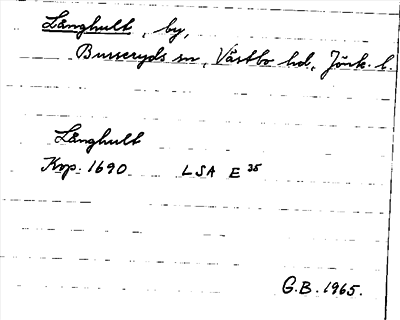 Långhult, by,
Burseryds sn, Västbo hd, Jönk. l.
Långhult
Krp. 1690 LSA E 35
G.B. 1965.